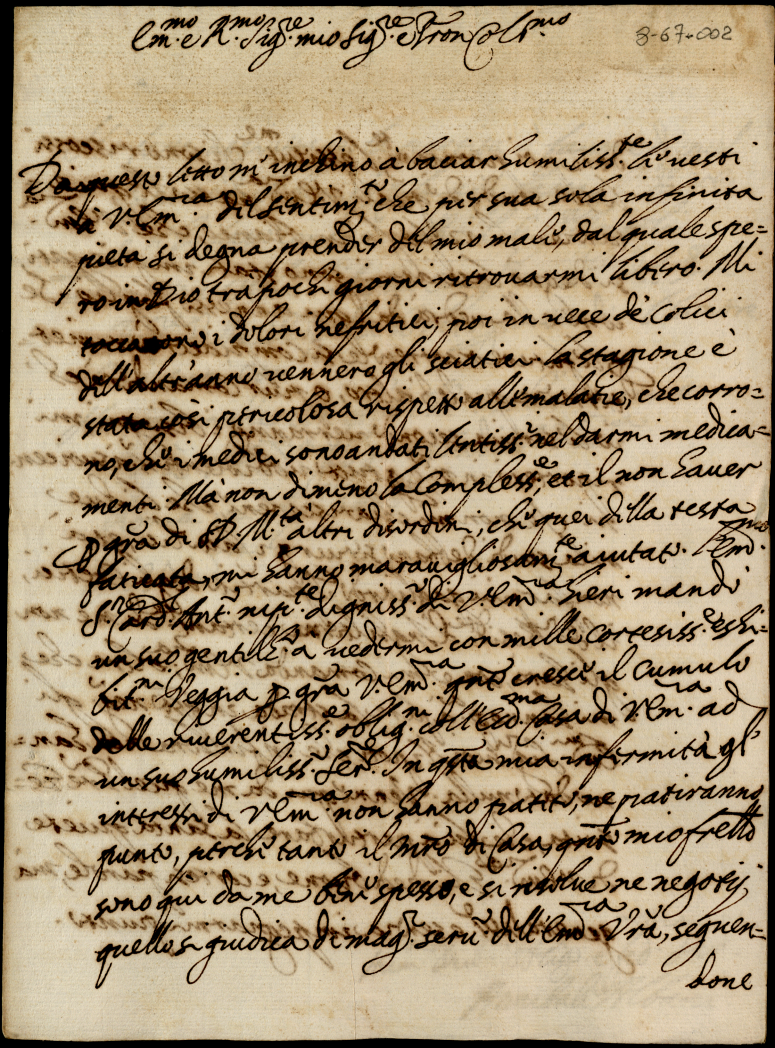 Em.mo e R.mo Sig.re mio Sig.re e Pron Col.mo
8-67-002
Da questo letto m'inchino à baciar humiliss.te le vesti
à V. Em.ia del sentim.to che per sua sola infinita
pietà si degna prender del mio male, dal quale spe=
ro in Dio tra pochi giorni ritrovarmi libero. Mi
toccarono i dolori nefritici, poi in vece de' Colici
dell'altr'anno vennero gli sciatici. La stagione è
stata così pericolosa rispetto all'malatie, che corro=
no, che i medici sono andati lentiss.i nel darmi medica=
menti. Mà non dimeno la Compless.e, et il non haver
p gra di S. D. M.tà altri disordini, che quei della testa
faticata, mi hanno maravigliosam.te aiutato. L'Em.mo
S.re Card. Ant.o nip.te digniss.o di V. Em.ia hieri mandò
un suo gentilh.o à vedermi con mille cortesiss.e eshi=
bit.ni Veggia p gra V. Em.ia qnto cresce il Cumulo
delle riverentiss.e oblig.ni coll'Ecc.ma Casa di V. Em.ia ad
un suo humiliss.o Ser.re In qsta mia infermità gl'
interessi di V. Em.ia non hanno patito, ne patiranno
punto, perche tanto il mro di Casa, qnto mio frello
sono qui da me bene spesso, e si risolve ne negotij
quello si giudica di mag.r serv.o dell'Em.ia Vra, seguen=
done